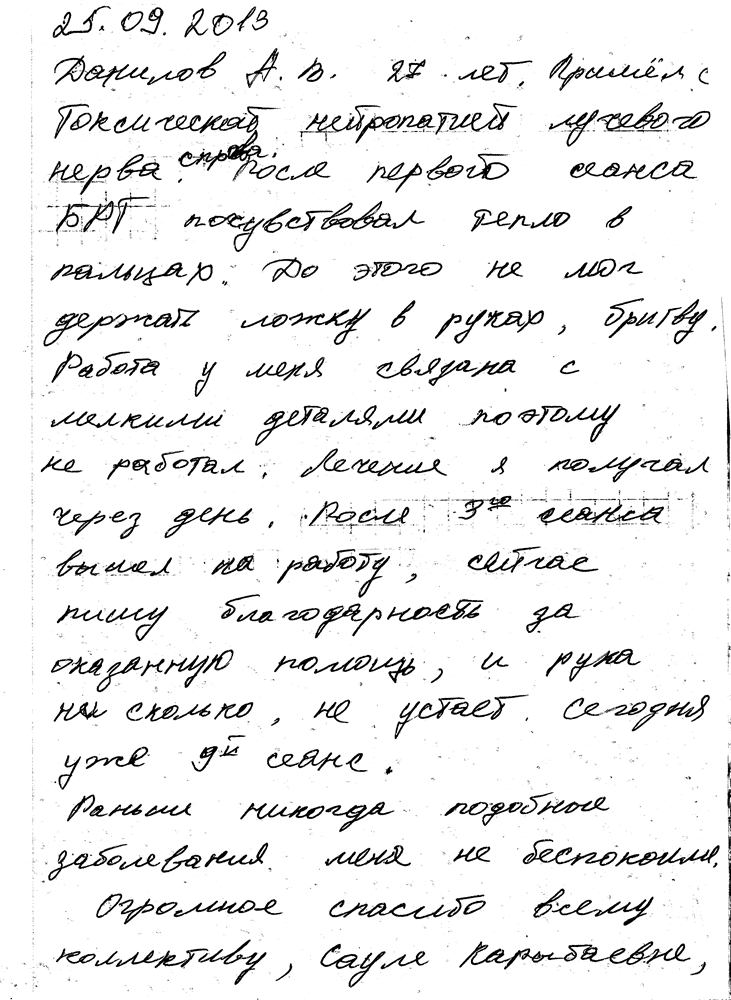 25.09.2013
Данилов А.В. 27 лет. Пришёл с
Токсической нейропатией лучевого
нерва справа. После первого сеанса
БРТ почувствовал тепло в
пальцах. До этого не мог
держать ложку в руках, бритву.
Работа у меня связана с
мелкими деталями поэтому
не работал. Лечение я получал
через день. После 3го сеанса
вышел на работу, сейчас
пишу благодарность за
оказанную помощь, и рука
ни сколько, не устает. Сегодня
уже 9й сеанс.
Раньше никогда подобные
заболевания меня не беспокоили.
Огромное спасибо всему
коллективу, Сауле Карыбаевне,